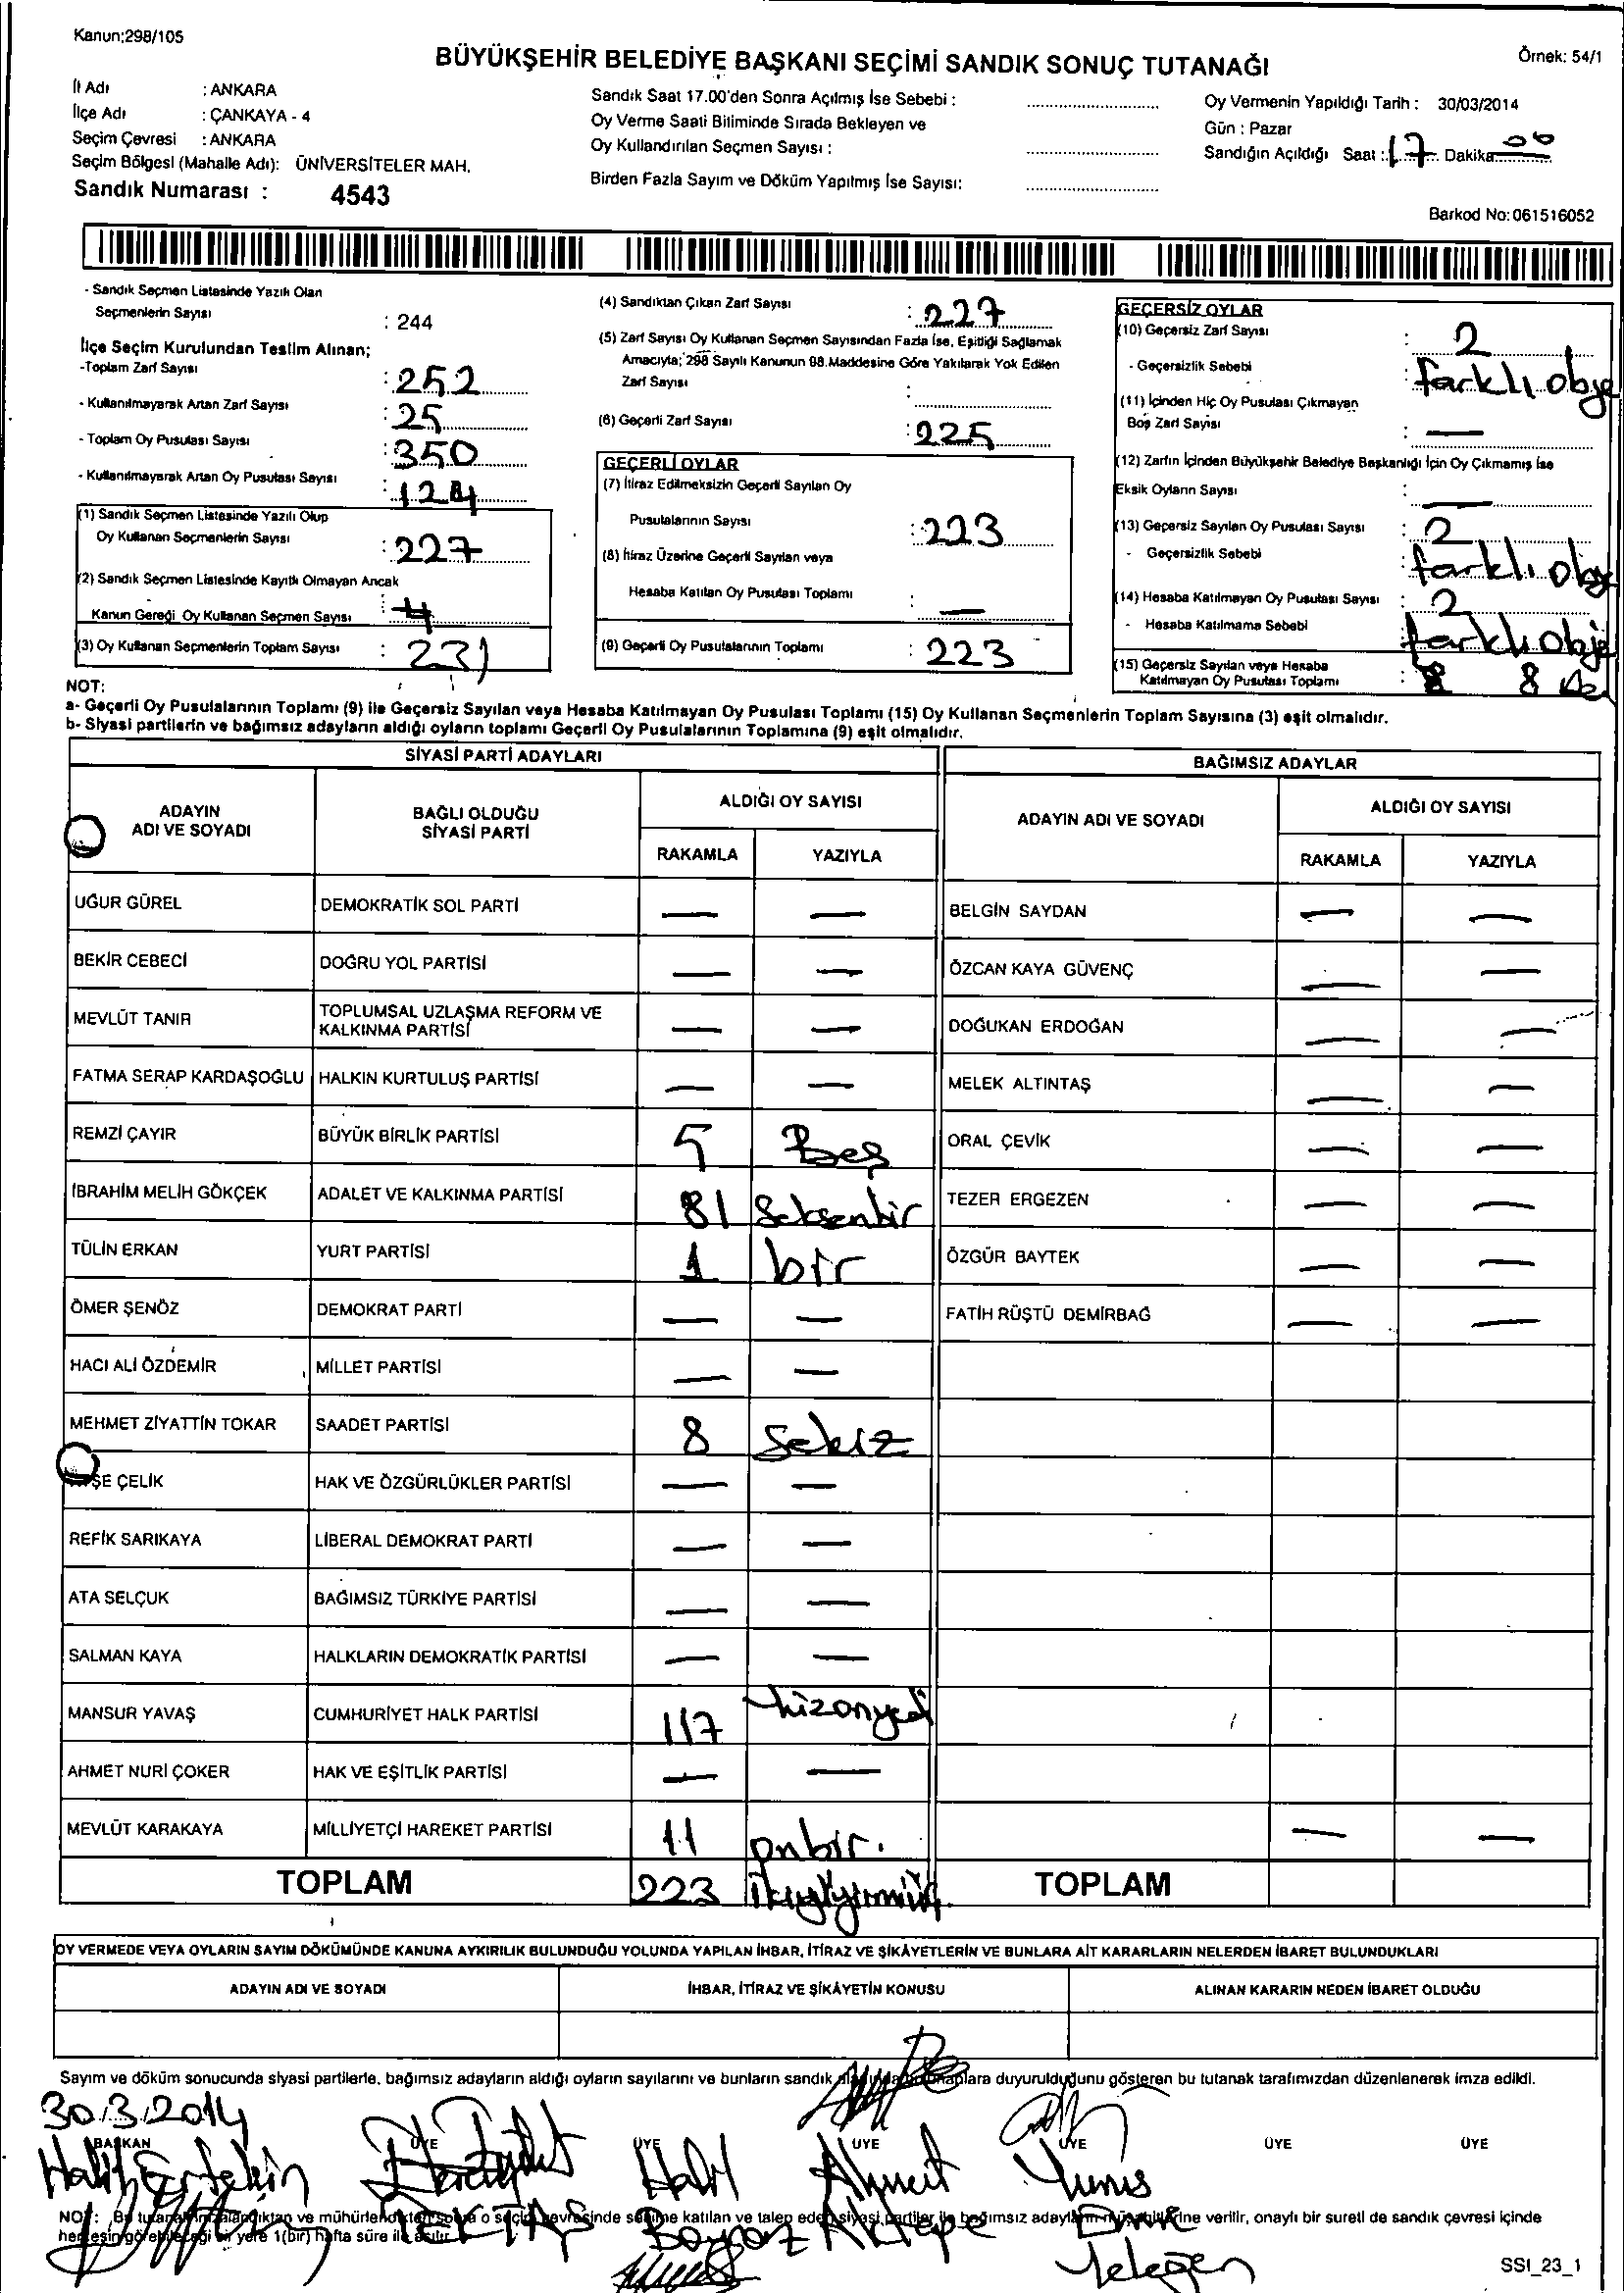 Kanun:298/105
BÜYÜKŞEHİR BELEDİYE BAŞKANI SEÇİMİ SANDIK SONUÇ TUTANAĞI
Örnek: 54/1
İl Adı : ANKARA
İlçe Adı : ÇANKAYA - 4
Seçim Çevresi : ANKARA
Seçim Bölgesi (Mahalle Adı): ÜNİVERSİTELER MAH.
Sandık Numarası : 4543
Sandık Saat 17.00'den Sonra Açılmış İse Sebebi :
Oy Verme Saati Bitiminde Sırada Bekleyen ve
Oy Kullandırılan Seçmen Sayısı :
Birden Fazla Sayım ve Döküm Yapılmış İse Sayısı:
Oy Vermenin Yapıldığı Tarih : 30/03/2014
Gün : Pazar
Sandığın Açıldığı Saat : 17 Dakika 00
Barkod No: 061516052
- Sandık Seçmen Listesinde Yazılı Olan
Seçmenlerin Sayısı : 244
İlçe Seçim Kurulundan Teslim Alınan;
-Toplam Zarf Sayısı : 252
- Kullanılmayarak Artan Zarf Sayısı : 25
- Toplam Oy Pusulası Sayısı : 350
- Kullanılmayarak Artan Oy Pusulası Sayısı : 124
(1) Sandık Seçmen Listesinde Yazılı Olup
Oy Kullanan Seçmenlerin Sayısı : 227
(2) Sandık Seçmen Listesinde Kayıtlı Olmayan Ancak
Kanun Gereği Oy Kullanan Seçmen Sayısı : 4
(3) Oy Kullanan Seçmenlerin Toplam Sayısı : 231
(4) Sandıktan Çıkan Zarf Sayısı : 227
(5) Zarf Sayısı Oy Kullanan Seçmen Sayısından Fazla İse, Eşitliği Sağlamak
Amacıyla; 298 Sayılı Kanunun 98.Maddesine Göre Yakılarak Yok Edilen
Zarf Sayısı :
(6) Geçerli Zarf Sayısı : 225
GEÇERLİ OYLAR
(7) İtiraz Edilmeksizin Geçerli Sayılan Oy
Pusulalarının Sayısı : 223
(8) İtiraz Üzerine Geçerli Sayılan veya
Hesaba Katılan Oy Pusulası Toplamı : —
(9) Geçerli Oy Pusulalarının Toplamı : 223
GEÇERSİZ OYLAR
(10) Geçersiz Zarf Sayısı : 2
- Geçersizlik Sebebi : farklı obje
(11) İçinden Hiç Oy Pusulası Çıkmayan
Boş Zarf Sayısı : —
(12) Zarfın İçinden Büyükşehir Belediye Başkanlığı İçin Oy Çıkmamış İse
Eksik Oyların Sayısı : —
(13) Geçersiz Sayılan Oy Pusulası Sayısı : 2
- Geçersizlik Sebebi : farklı obje
(14) Hesaba Katılmayan Oy Pusulası Sayısı : 2
- Hesaba Katılmama Sebebi : farklı obje
(15) Geçersiz Sayılan veya Hesaba
Katılmayan Oy Pusulası Toplamı : 8 8
NOT:
a- Geçerli Oy Pusulalarının Toplamı (9) ile Geçersiz Sayılan veya Hesaba Katılmayan Oy Pusulası Toplamı (15) Oy Kullanan Seçmenlerin Toplam Sayısına (3) eşit olmalıdır.
b- Siyasi partilerin ve bağımsız adayların aldığı oyların toplamı Geçerli Oy Pusulalarının Toplamına (9) eşit olmalıdır.
SİYASİ PARTİ ADAYLARI
ADAYIN ADI VE SOYADI BAĞLI OLDUĞU SİYASİ PARTİ ALDIĞI OY SAYISI
RAKAMLA YAZIYLA
BAĞIMSIZ ADAYLAR
ADAYIN ADI VE SOYADI ALDIĞI OY SAYISI
RAKAMLA YAZIYLA
UĞUR GÜREL DEMOKRATİK SOL PARTİ — — BELGİN SAYDAN — —
BEKİR CEBECİ DOĞRU YOL PARTİSİ — — ÖZCAN KAYA GÜVENÇ — —
MEVLÜT TANIR TOPLUMSAL UZLAŞMA REFORM VE KALKINMA PARTİSİ — — DOĞUKAN ERDOĞAN — —
FATMA SERAP KARDAŞOĞLU HALKIN KURTULUŞ PARTİSİ — — MELEK ALTINTAŞ — —
REMZİ ÇAYIR BÜYÜK BİRLİK PARTİSİ 5 Beş ORAL ÇEVİK — —
İBRAHİM MELİH GÖKÇEK ADALET VE KALKINMA PARTİSİ 81 Seksenbir TEZER ERGEZEN — —
TÜLİN ERKAN YURT PARTİSİ 1 bir ÖZGÜR BAYTEK — —
ÖMER ŞENÖZ DEMOKRAT PARTİ — — FATİH RÜŞTÜ DEMİRBAĞ — —
HACI ALİ ÖZDEMİR MİLLET PARTİSİ — —
MEHMET ZİYATTİN TOKAR SAADET PARTİSİ 8 Sekiz
ŞE ÇELİK HAK VE ÖZGÜRLÜKLER PARTİSİ — —
REFİK SARIKAYA LİBERAL DEMOKRAT PARTİ — —
ATA SELÇUK BAĞIMSIZ TÜRKİYE PARTİSİ — —
SALMAN KAYA HALKLARIN DEMOKRATİK PARTİSİ — —
MANSUR YAVAŞ CUMHURİYET HALK PARTİSİ 117 yüzonyedi
AHMET NURİ ÇOKER HAK VE EŞİTLİK PARTİSİ — —
MEVLÜT KARAKAYA MİLLİYETÇİ HAREKET PARTİSİ 11 onbir. — —
TOPLAM 223 ikiyüzyirmiüç. TOPLAM
OY VERMEDE VEYA OYLARIN SAYIM DÖKÜMÜNDE KANUNA AYKIRILIK BULUNDUĞU YOLUNDA YAPILAN İHBAR, İTİRAZ VE ŞİKÂYETLERİN VE BUNLARA AİT KARARLARIN NELERDEN İBARET BULUNDUKLARI
ADAYIN ADI VE SOYADI İHBAR, İTİRAZ VE ŞİKÂYETİN KONUSU ALINAN KARARIN NEDEN İBARET OLDUĞU
Sayım ve döküm sonucunda siyasi partilerle, bağımsız adayların aldığı oyların sayılarını ve bunların sandık duyurulduğunu gösteren bu tutanak tarafımızdan düzenlenerek imza edildi.
30.3.2014
BAŞKAN ÜYE ÜYE ÜYE ÜYE ÜYE ÜYE
Halil Ahmet Yunus
BEKTAŞ Boyraz Aktepe Emre
Yeleğen
NOT: Bu tutanak imzalandıktan ve mühürlendikten sonra o seçim çevresinde seçime katılan ve talep eden siyasi partiler ile bağımsız adayların müşahitlerine verilir, onaylı bir sureti de sandık çevresi içinde
herkesin görebileceği bir yere 1(bir) hafta süre ile asılır.
SSI_23_1